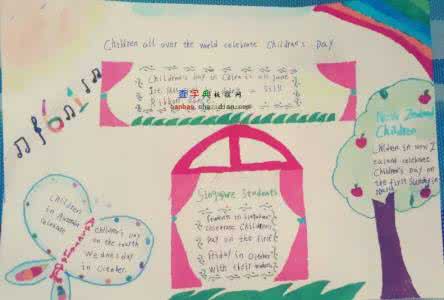 Children all over the world celebrate Children's Day
Children's day in China is on June
1st
Ribbon dance
查字典 板报网
banbao.chazidian.com
New Zealand
Children
Children in new Z
ealand celebrate
Children's Day on
the first Sunday in
Singapore Students
Students in Singapore
celebrate Children's
Day on the first
Friday in October
with their
Children
in Australia
celebrate
Children's Day
on the fourth
Wednesday
in October.